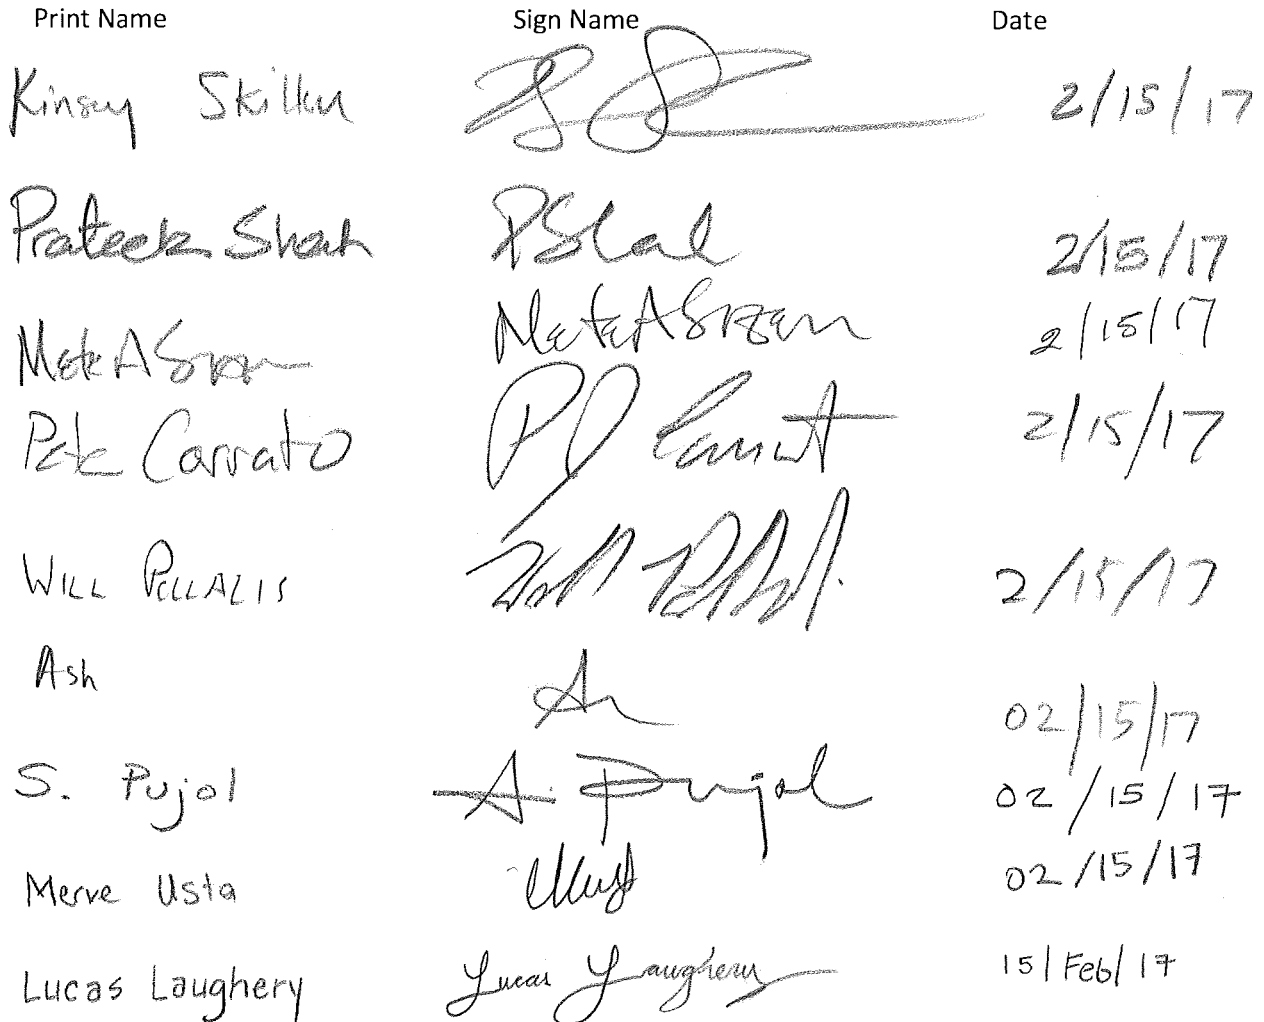 Print Name Sign Name Date
Kinsey Skillen 2/15/17
Prateek Shah PShah 2/15/17
Mete A Sozen Mete A Sozen 2/15/17
Pete Carrato P Carrato 2/15/17
WILL POLLALIS Will 2/15/17
Ash 02/15/17
S. Pujol S. Pujol 02/15/17
Merve Usta 02/15/17
Lucas Laughery Lucas Laughery 15/Feb/17